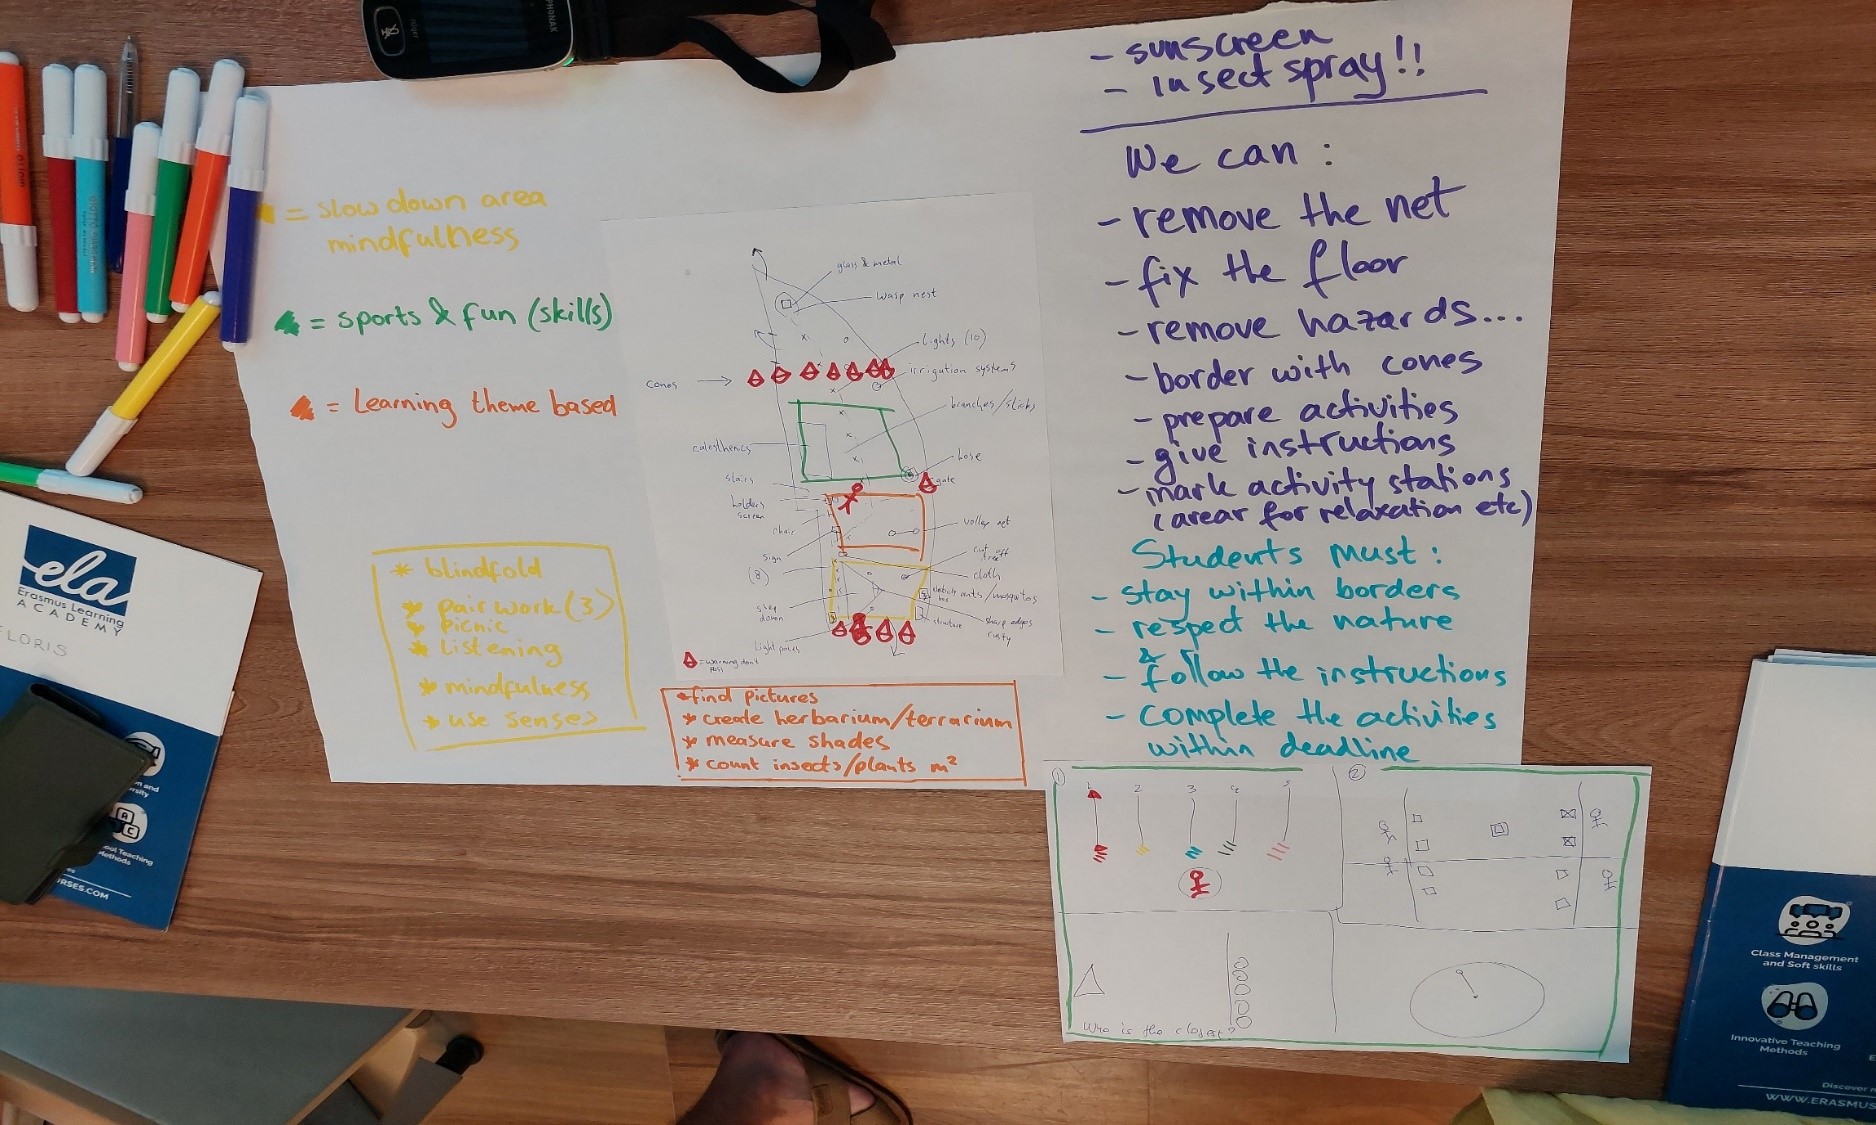 PHONAK
roger
- sunscreen
- insect spray!!
We can :
- remove the net
- fix the floor
- remove hazards...
- border with cones
- prepare activities
- give instructions
- mark activity stations
(arear for relaxation etc)
Students must :
- stay within borders
- respect the nature
& follow the instructions
- complete the activities
within deadline
= slow down area
mindfulness
= sports & fun (skills)
= Learning theme based
* blindfold
* pair work (3)
* picnic
* listening
* mindfulness
* use senses
glass & metal
wasp nest
lights (10)
irrigation systems
cones
branches/sticks
calesthenics
hose
gate
stairs
holders
screen
chair
volley net
sign
cut off
tree
(8)
cloth
ants/mosquitos
step
down
sharp edges
rusty
structure
light poles
= warning don't
pass
* find pictures
* create herbarium/terrarium
* measure shades
* count insects/plants m²
1
1 2 3 4 5
2
Who is the closest?
ela
Erasmus Learning
ACADEMY
FLORIS
Class Management
and Soft skills
Innovative Teaching
Methods
Discover
WWW.ERASMUS